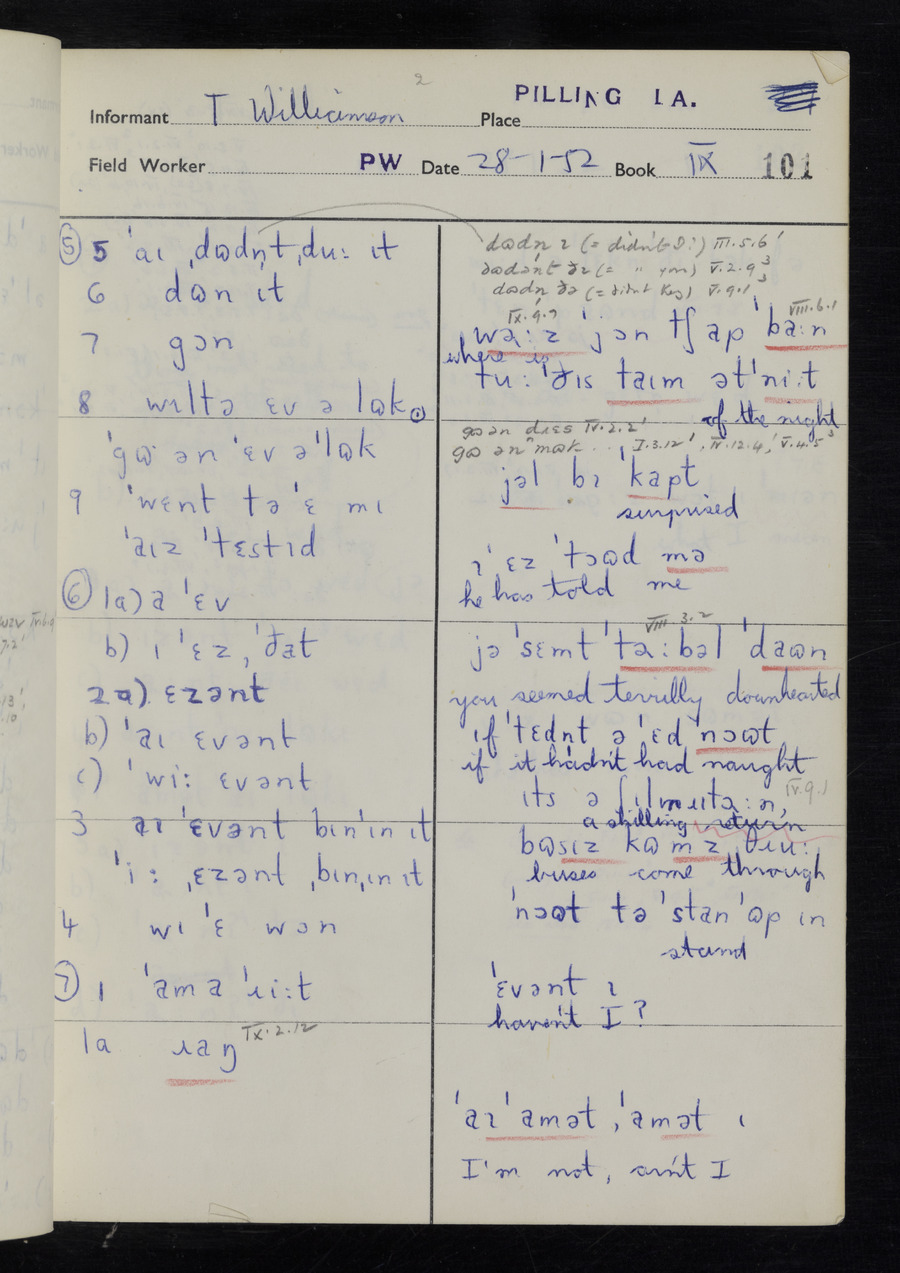 2
PILLING 1A.
Informant T Williamson Place
Field Worker PW Date 28-1-52 Book IX 101
⑤ 5 ˈaɪ ˌdɷdn̩t ˌduː ɪt
6 dɷn ɪt
7 gɔn
8 wɪltə ɛv ə lɷk
ˈgɷ ən ˈɛv əˈlɷk
9 ˈwɛnt tə ˈɛ mɪ
ˈaɪz ˈtɛstɪd
⑥ 1a) a ˈɛv
b) ɪ ˈɛz ˌˈðat
2a) ɛzənt
b) ˈaɪ ɛvənt
c) ˈwiː ɛvənt
3 aɪ ˈɛvənt bɪnˈɪn ɪt
ˈiː ˌɛzənt ˌbɪnˌɪn ɪt
4 wɪ ˈɛ wɔn
⑦ 1 ˈam a ˈɹiːt
1a ɹaŋ IX.2.12
dɷdn ɪ (= didn't I:) III.5.6ˈ
dɷdənt ðɪ (= " you) V.2.9³
dɷdn ðə (= didnt they) V.9.1³
IX.9.7 VIII.6.1
wəːz ˈjɔn tʃap ˈbaːn
where is
tuː ˈðɪs taɪm ətˈniːt
of the night
gɷ ən dɪɛs IV.2.2ˈ
gɷ ən mɷk... I.3.12ˈ, IV.12.4ˈ, V.4.5³
jəl bɪ ˈkapt
surprised
ɪˈ ɛz ˈtɔɷd mə
he has told me
VIII.3.2
jə ˈsɛmt ˈtəːbəl ˈdaɷn
you seemed terribly downhearted
ɪf ˈtɛdnt ə ˈɛd nɔɷt
if it hadn't had naught
IV.9.1
a shilling return
bɷsɪz kɷmz θɹuː
buses come through
ˈnɔɷt tə ˈstan ˈɷp ɪn
stand
ˈɛvənt ɪ
haven't I?
ˈaɪ ˈamət, ˈamət ɪ
I'm not, ain't I